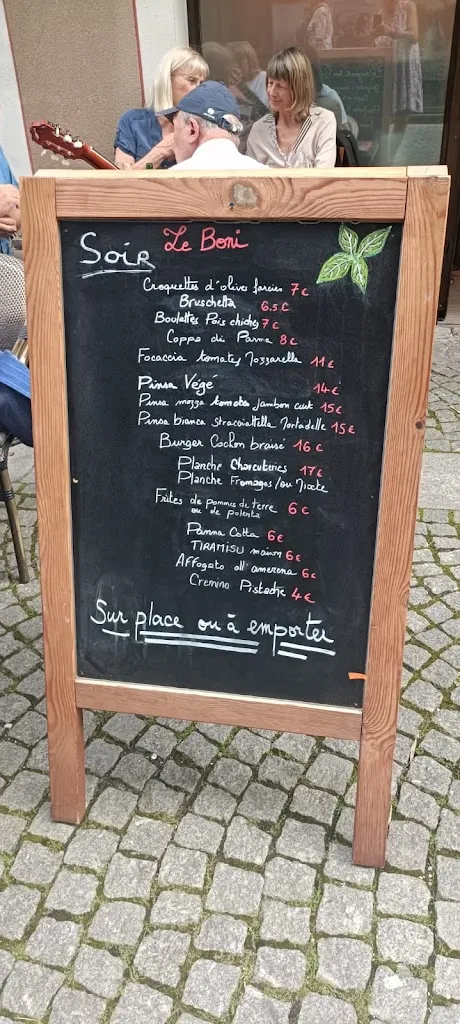 Soir Le Boni
Croquettes d'olives farcies 7€
Bruschetta 6.5€
Boulettes Pois chiches 7€
Coppa di Parma 8€
Focaccia tomates Mozzarella 11€
Pinsa Végé 14€
Pinsa mozza tomates jambon cuit 15€
Pinsa bianca stracciattella Mortadelle 15€
Burger Cochon braisé 16€
Planche Charcuteries 17€
Planche Fromages/ou Mixte
Frites de pommes de terre 6€
ou de polenta
Panna Cotta 6€
TIRAMISU maison 6€
Affogato all'amerena 6€
Cremino Pistache 4€
Sur place ou à emporter